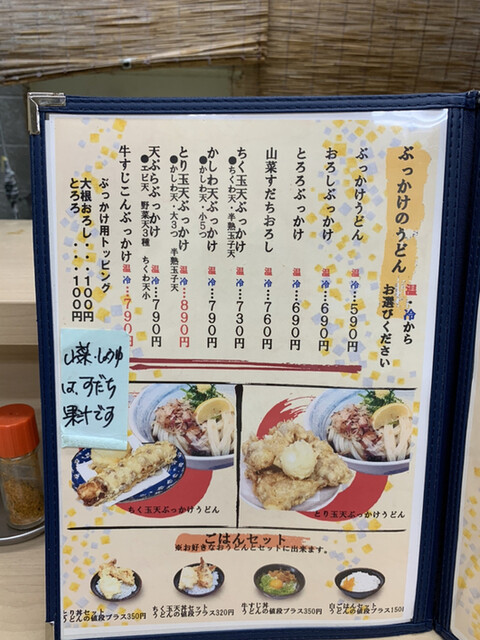 ぶっかけのうどん
温・冷から
お選びください
ぶっかけうどん 温 冷…590円
おろしぶっかけ 温 冷…690円
とろろぶっかけ 温 冷…690円
山菜すだちおろし 温 冷…760円
ちく玉天ぶっかけ 温 冷…730円
●ちくわ天、半熟玉子天
かしわ天ぶっかけ 温 冷…790円
●かしわ天・小5つ
とり玉天ぶっかけ 温 冷…890円
●かしわ天・大3つ 半熟玉子天
天ぷらぶっかけ 温 冷…790円
●エビ天 野菜天3種 ちくわ天小
牛すじこんぶっかけ 温 冷…790円
ぶっかけ用トッピング
大根おろし・・・100円
とろろ・・・・100円
山菜・しょうゆ
は、すだち
果汁です
ちく玉天ぶっかけうどん
とり玉天ぶっかけうどん
ごはんセット
※お好きなおうどんとセットに出来ます。
とり丼セット
うどんの値段プラス350円
ちく玉天丼セット
うどんの値段プラス320円
牛すじ丼
うどんの値段プラス350円
白ごはんセット
うどんの値段プラス150円